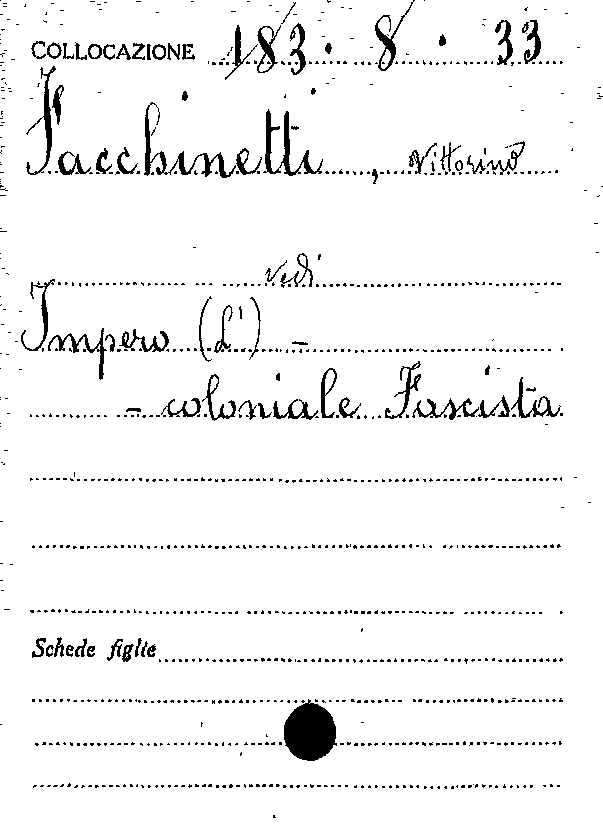 COLLOCAZIONE 183. 8. 33
Facchinetti, Vittorino
vedi
Impero (L') -
- coloniale Fascista
Schede figlie